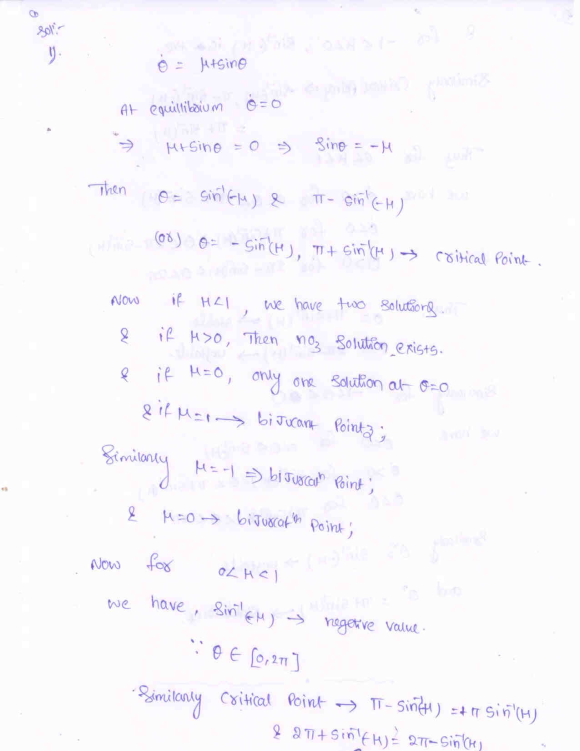 Sol:-
1).
θ̇ = μ+sinθ
At equillibrium θ̇=0
⇒ μ+sinθ = 0 ⇒ sinθ = -μ
Then θ = sin⁻¹(-μ) & π - sin⁻¹(-μ)
(or) θ = - sin⁻¹(μ), π + sin⁻¹(μ) → critical point.
Now if μ<1, we have two solutions
& if μ>0, Then no solution exists.
& if μ=0, only one solution at θ=0
& if μ=1 → bifurcant point;
Similarly μ=-1 ⇒ bifurcatⁿ point;
& μ=0 → bifurcatⁿ point;
Now for 0<μ<1
we have, sin⁻¹(-μ) → negetive value.
∵ θ ∈ [0,2π]
Similarly critical point → π - sin⁻¹(-μ) = + π sin⁻¹(μ)
& 2π + sin⁻¹(-μ) = 2π - sin⁻¹(μ)